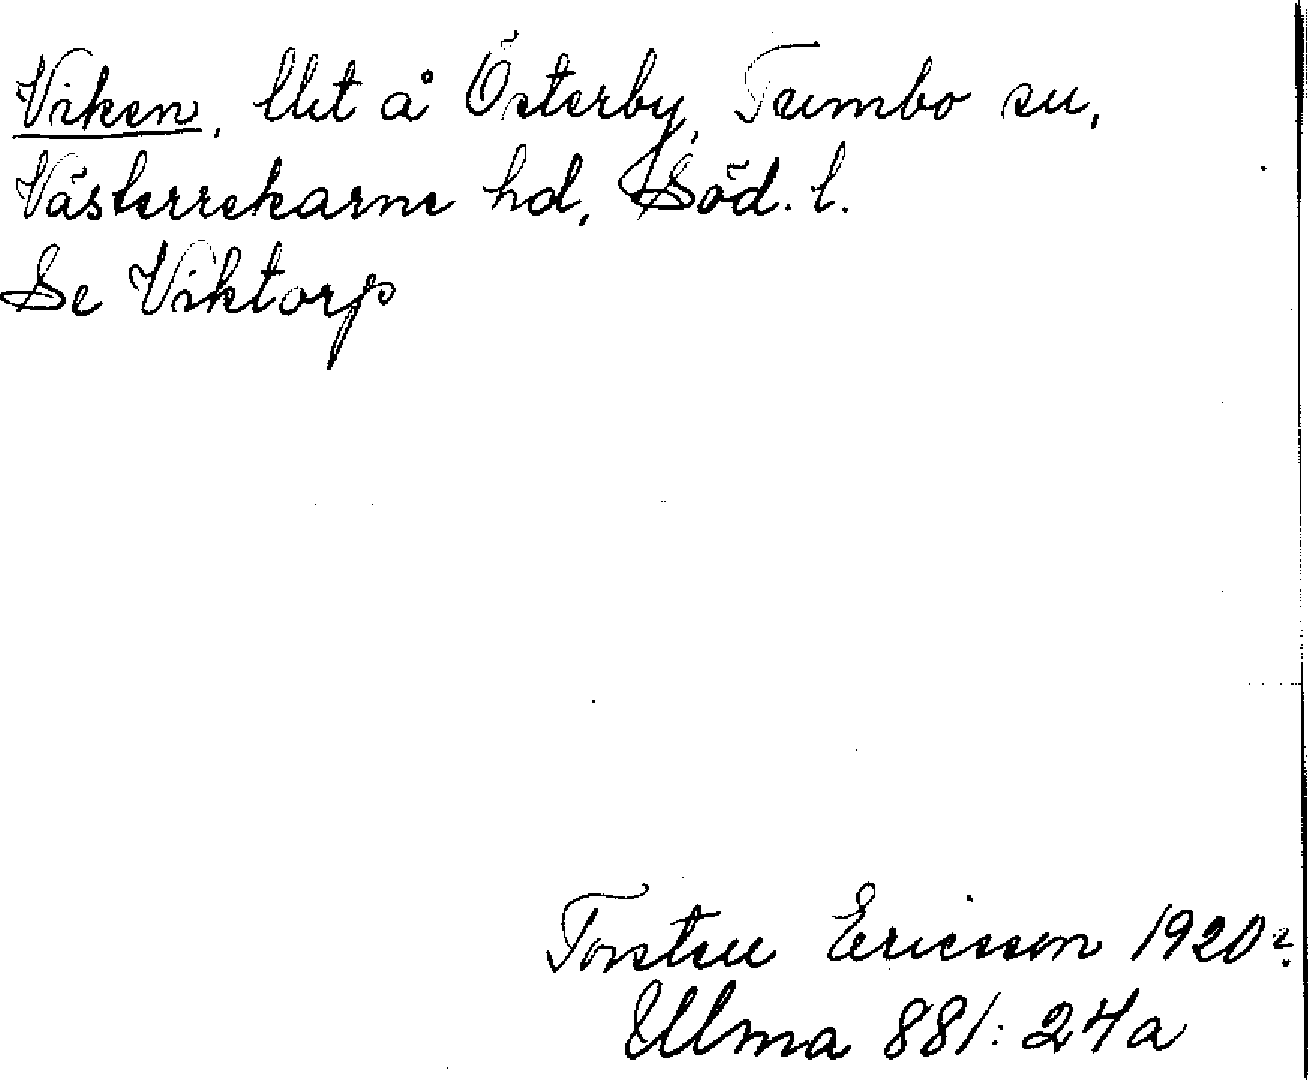 Viken, lht å Österby, Tumbo sn,
Västerrekarne hd, Söd. l.
Se Viktorp
Torsten Ericsson 1920?
Ulma 881:24a